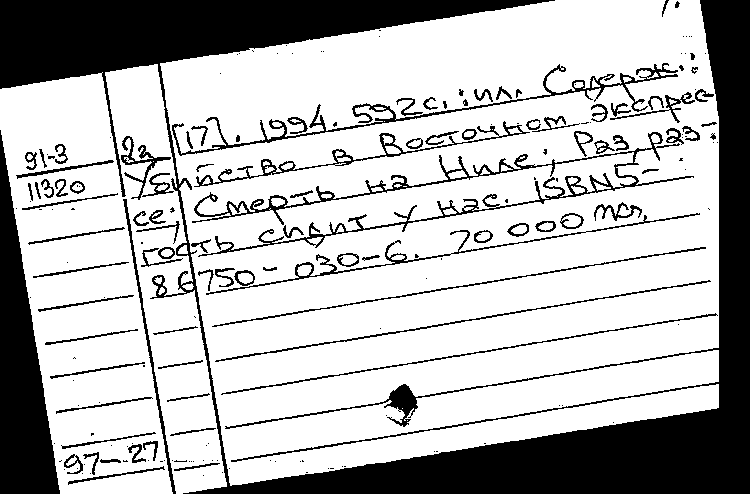 1.
[17]. 1994. 592с.: ил. Содерж.:
91-3 2а Убийство в Восточном экспрес-
11320 се; Смерть на Ниле; Раз, раз-
гость сидит у нас. ISBN5-
86750-030-6. 70 000 экз.
97-27